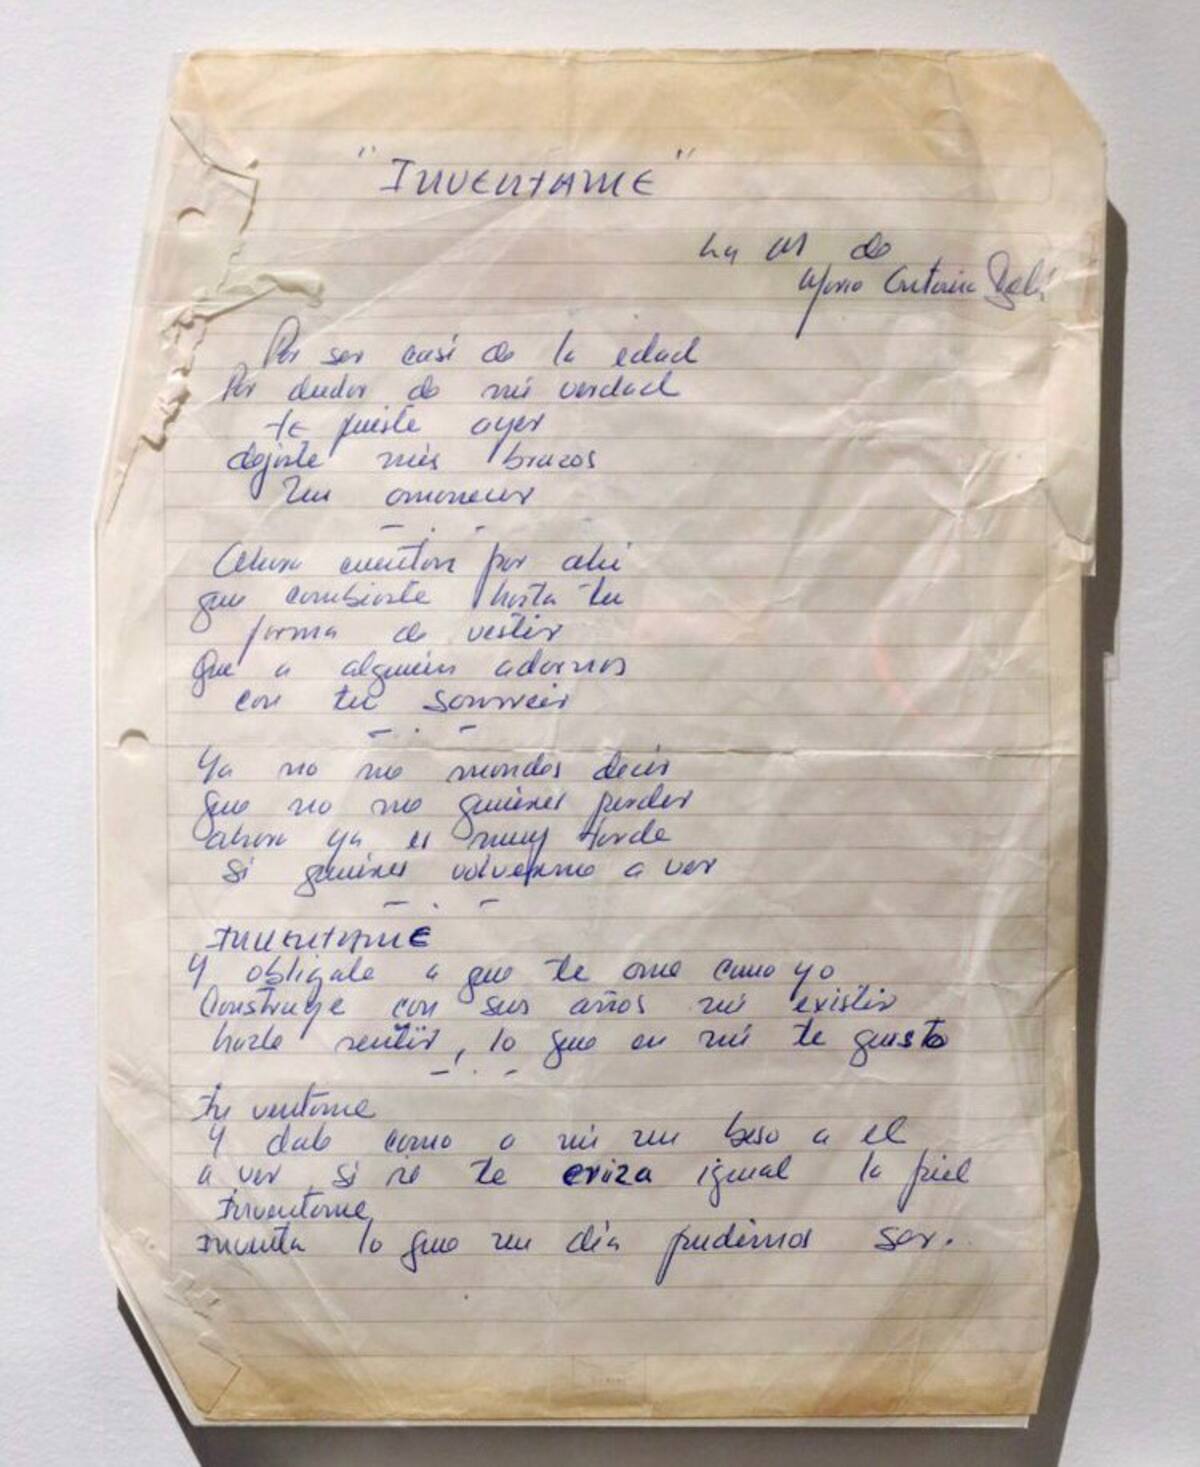 "INVENTAME"
de
Por ser casi de la edad
Por dudar de mi verdad
te fuiste ayer
dejaste mis brazos
un amanecer
Ahora cuentan por ahi
que cambiaste hasta tu
forma de vestir
Que a alguien adornas
con tu sonreir
Ya no me mandes decir
que no me quieres perder
ahora ya es muy tarde
Si quieres volverme a ver
INVENTAME
Y obligale a que te ame como yo
Construye con sus años mi existir
hazle sentir, lo que en mi te gusto
Inventame
Y dale como a mi un beso a el
a ver si se te eriza igual la piel
Inventame
inventa lo que un dia pudimos ser.